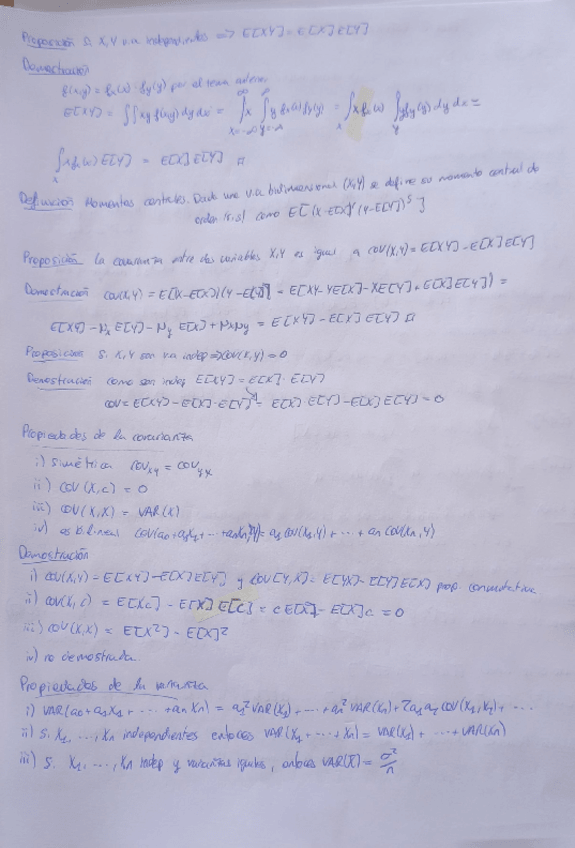 Proposición Si X,Y v.a independientes => E[XY] = E[X]E[Y]
Demostración
f(x,y) = fx(x) · fy(y) por el tema anterior
E[XY] = ∫∫xy f(x,y) dy dx = ∫x ∫y fx(x) fy(y) = ∫x fx(x) ∫y fy(y) dy dx =
∫x fx(x) E[Y] = E[X] E[Y] #
Definición Momentos centrales. Dada una v.a bidimensional (X,Y) se define su momento central de
orden (r,s) como E[(X-E[X])^r (Y-E[Y])^s]
Proposición La covarianza entre dos variables X,Y es igual a COV(X,Y) = E[XY] - E[X]E[Y]
Demostración COV(X,Y) = E[(X-E[X])(Y-E[Y])] = E[XY - YE[X] - XE[Y] + E[X]E[Y]] =
E[XY] - μx E[Y] - μy E[X] + μxμy = E[XY] - E[X] E[Y] #
Proposición Si X,Y son v.a indep => COV(X,Y) = 0
Demostración como son indep E[XY] = E[X] · E[Y]
COV = E[XY] - E[X]·E[Y] = E[X]·E[Y] - E[X]E[Y] = 0
Propiedades de la covarianza
i) simétrica COVxy = COVyx
ii) COV(X,c) = 0
iii) COV(X,X) = VAR(X)
iv) es bilineal COV(a0+a1X1+ ... +anXn,Y) = a1 COV(X1,Y) + ... + an COV(Xn,Y)
Demostración
i) COV(X,Y) = E[XY] - E[X]E[Y] y COV[Y,X] = E[YX] - E[Y]E[X] prop. conmutativa
ii) COV(X,c) = E[Xc] - E[X] E[c] = c E[X] - E[X]c = 0
iii) COV(X,X) = E[X²] - E[X]²
iv) no demostrada.
Propiedades de la varianza
i) VAR(a0+a1X1+ ... +anXn) = a1² VAR(X1) + ... + an² VAR(Xn) + 2a1a2 COV(X1,X2) + ...
ii) Si X1, ..., Xn independientes entonces VAR(X1+ ... +Xn) = VAR(X1) + ... + VAR(Xn)
iii) Si X1, ..., Xn indep y varianzas iguales, entonces VAR(X̄) = σ²/n